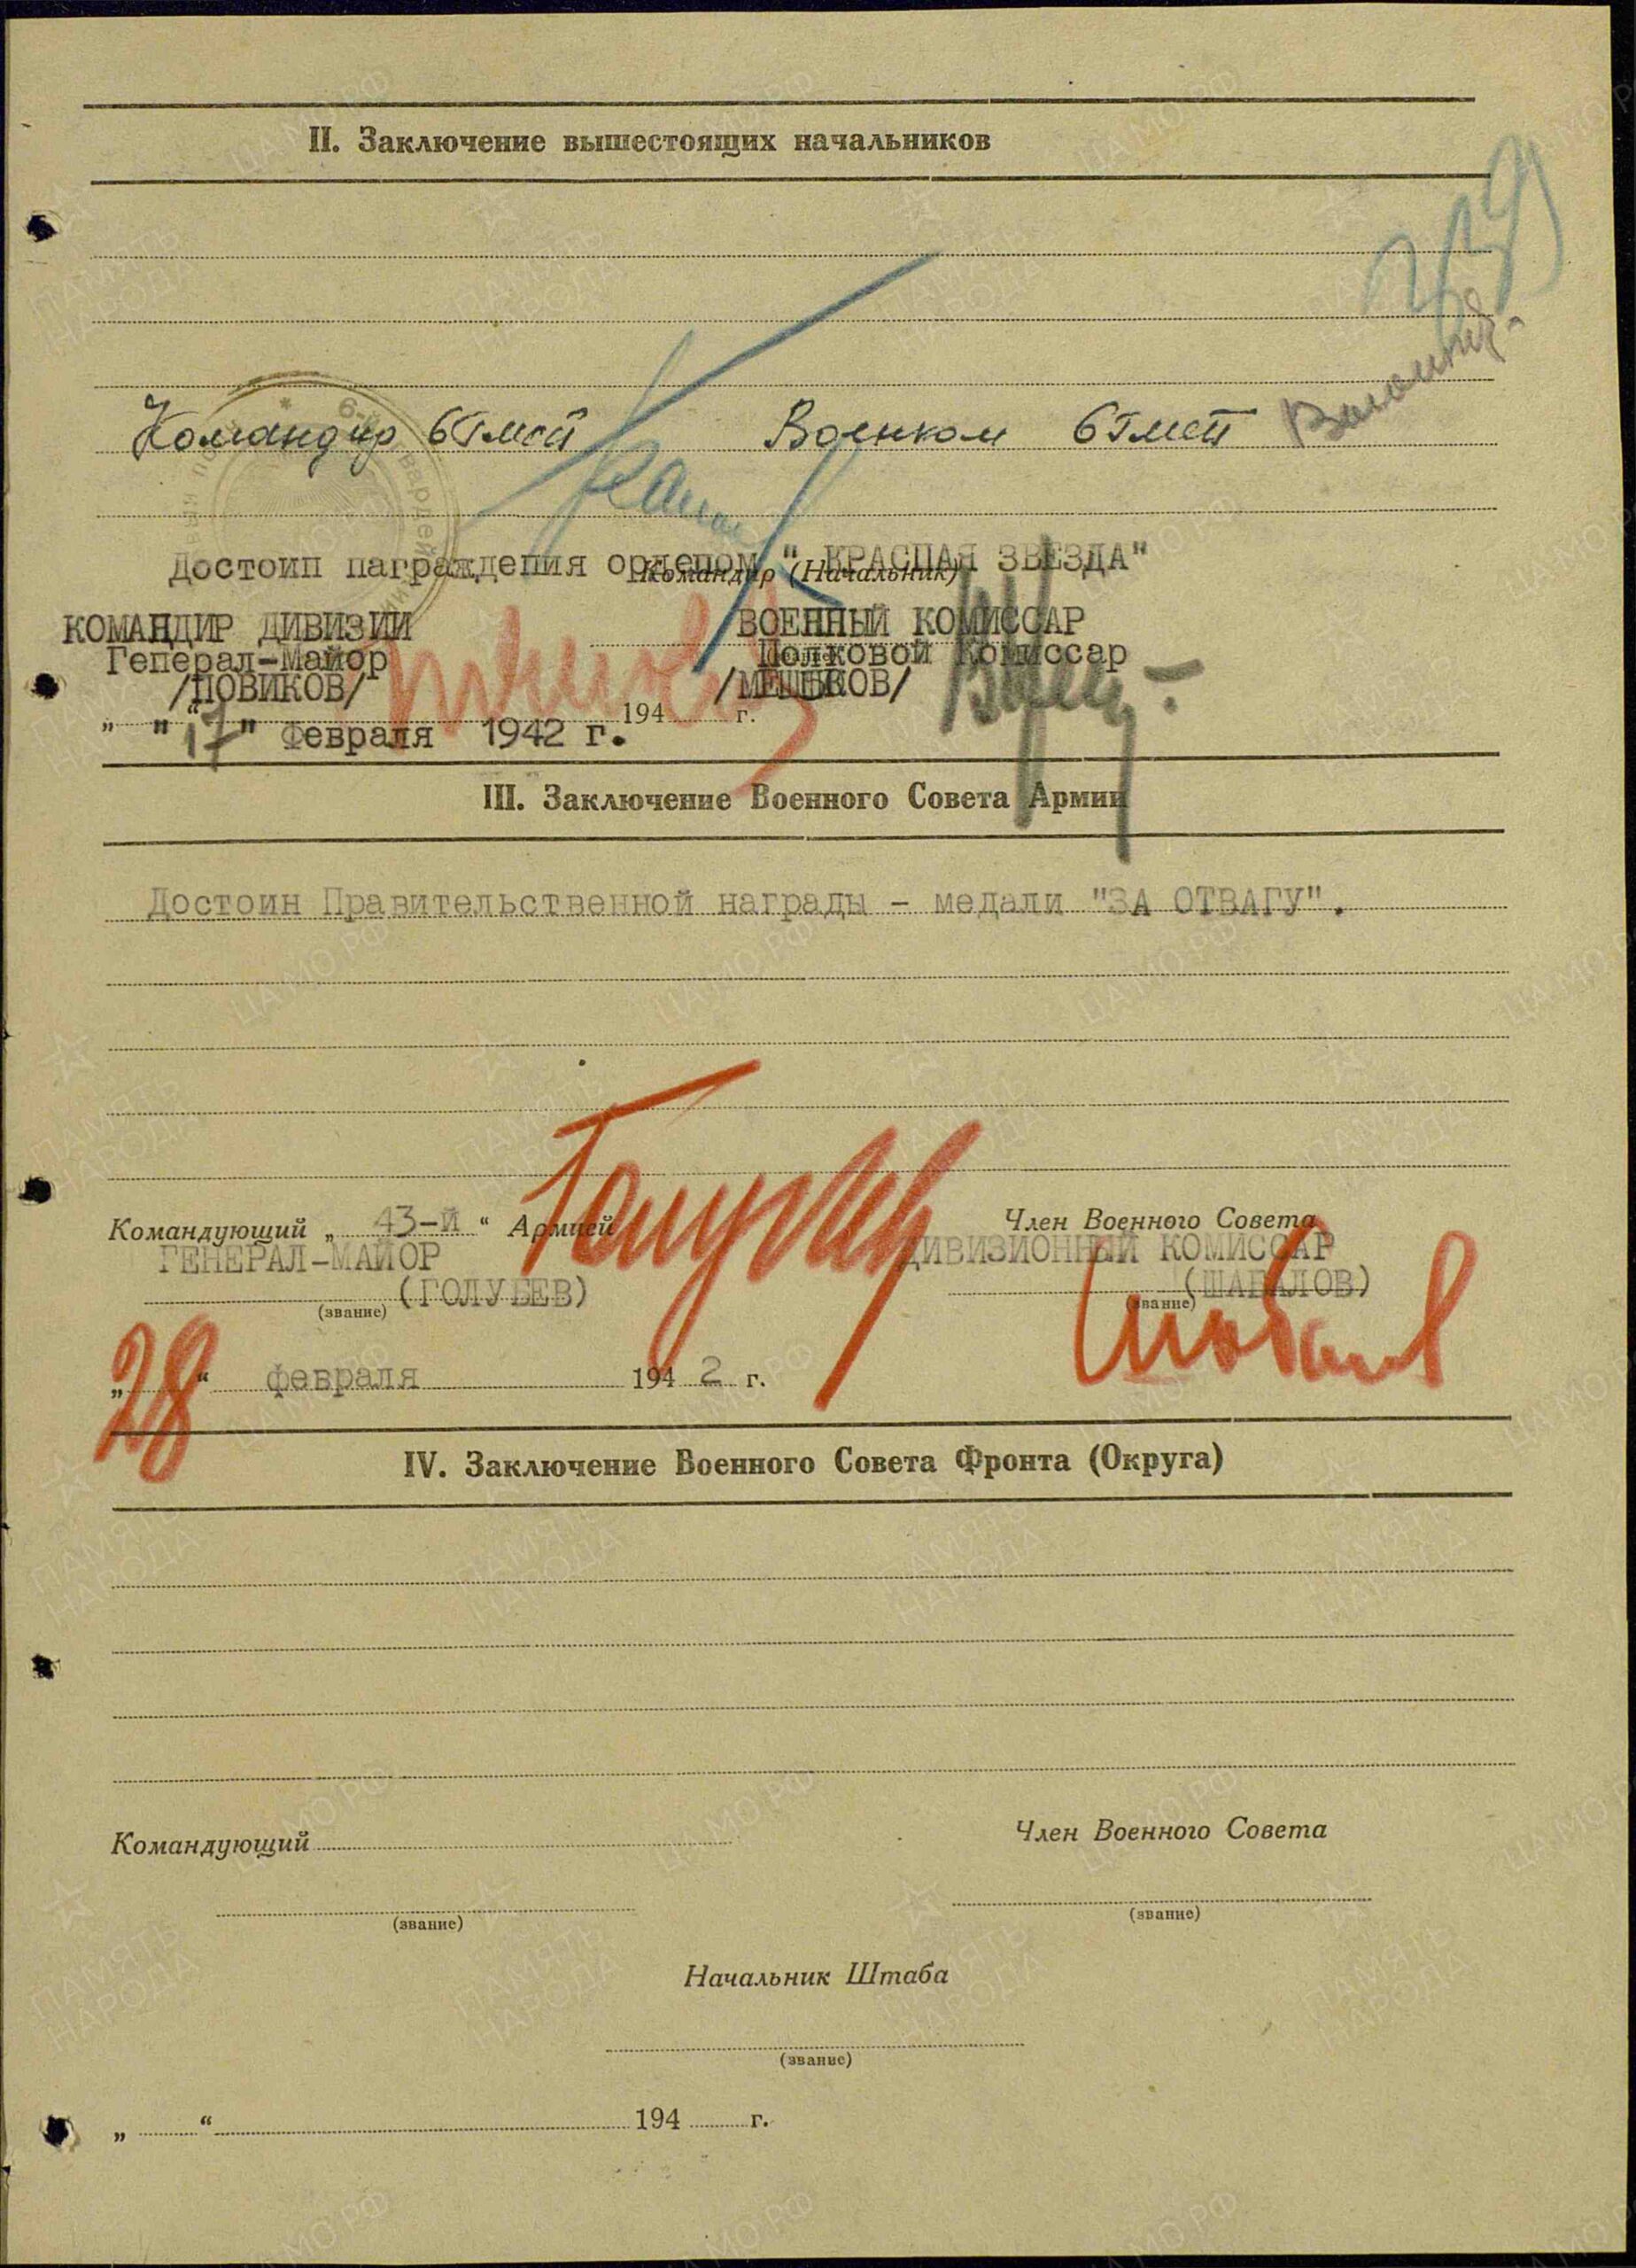 II. Заключение вышестоящих начальников
Командир 6ГМСП Военком 6ГМСП
Достоин награждения орденом "КРАСНАЯ ЗВЕЗДА"
Командир (Начальник)
КОМАНДИР ДИВИЗИИ ВОЕННЫЙ КОМИССАР
Генерал-Майор Полковой Комиссар
/НОВИКОВ/ /МЕШКОВ/
„ “ 194 г.
"17" февраля 1942 г.
III. Заключение Военного Совета Армии
Достоин Правительственной награды - медали "ЗА ОТВАГУ".
Командующий „43-й“ Армией Член Военного Совета
ГЕНЕРАЛ-МАЙОР ДИВИЗИОННЫЙ КОМИССАР
(ГОЛУБЕВ) (ШАБАЛОВ)
(звание) (звание)
Голубев Шабалов
„28“ февраля 1942 г.
IV. Заключение Военного Совета Фронта (Округа)
Командующий Член Военного Совета
(звание) (звание)
Начальник Штаба
(звание)
„ “ 194 г.